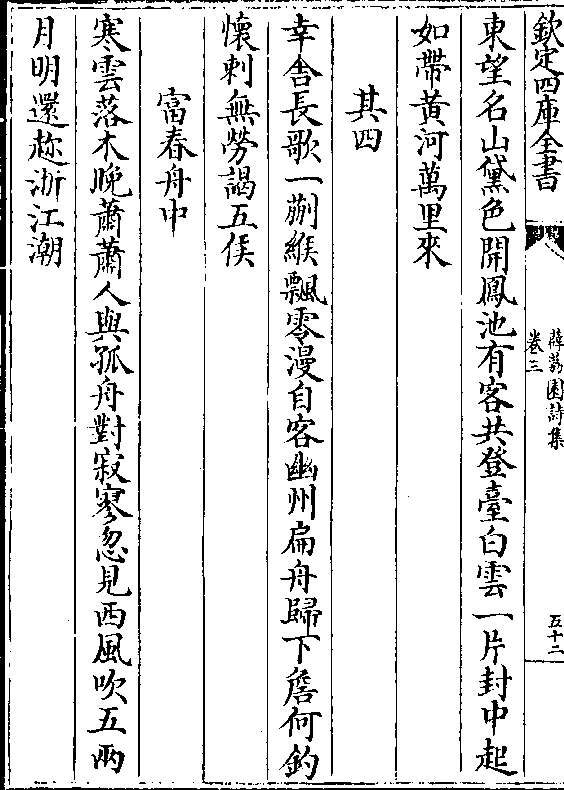 欽定四庫全書
薜荔園詩集
卷三
五十二
東望名山黛色開鳳池有客共登臺白雲一片封中起
如帶黄河萬里來
其四
幸舍長歌一蒯緱飄零漫自客幽州扁舟歸下詹何釣
懷刺無勞謁五侯
富春舟中
寒雲落木晚蕭蕭人與孤舟對寂寥忽見西風吹五兩
月明還趂浙江潮